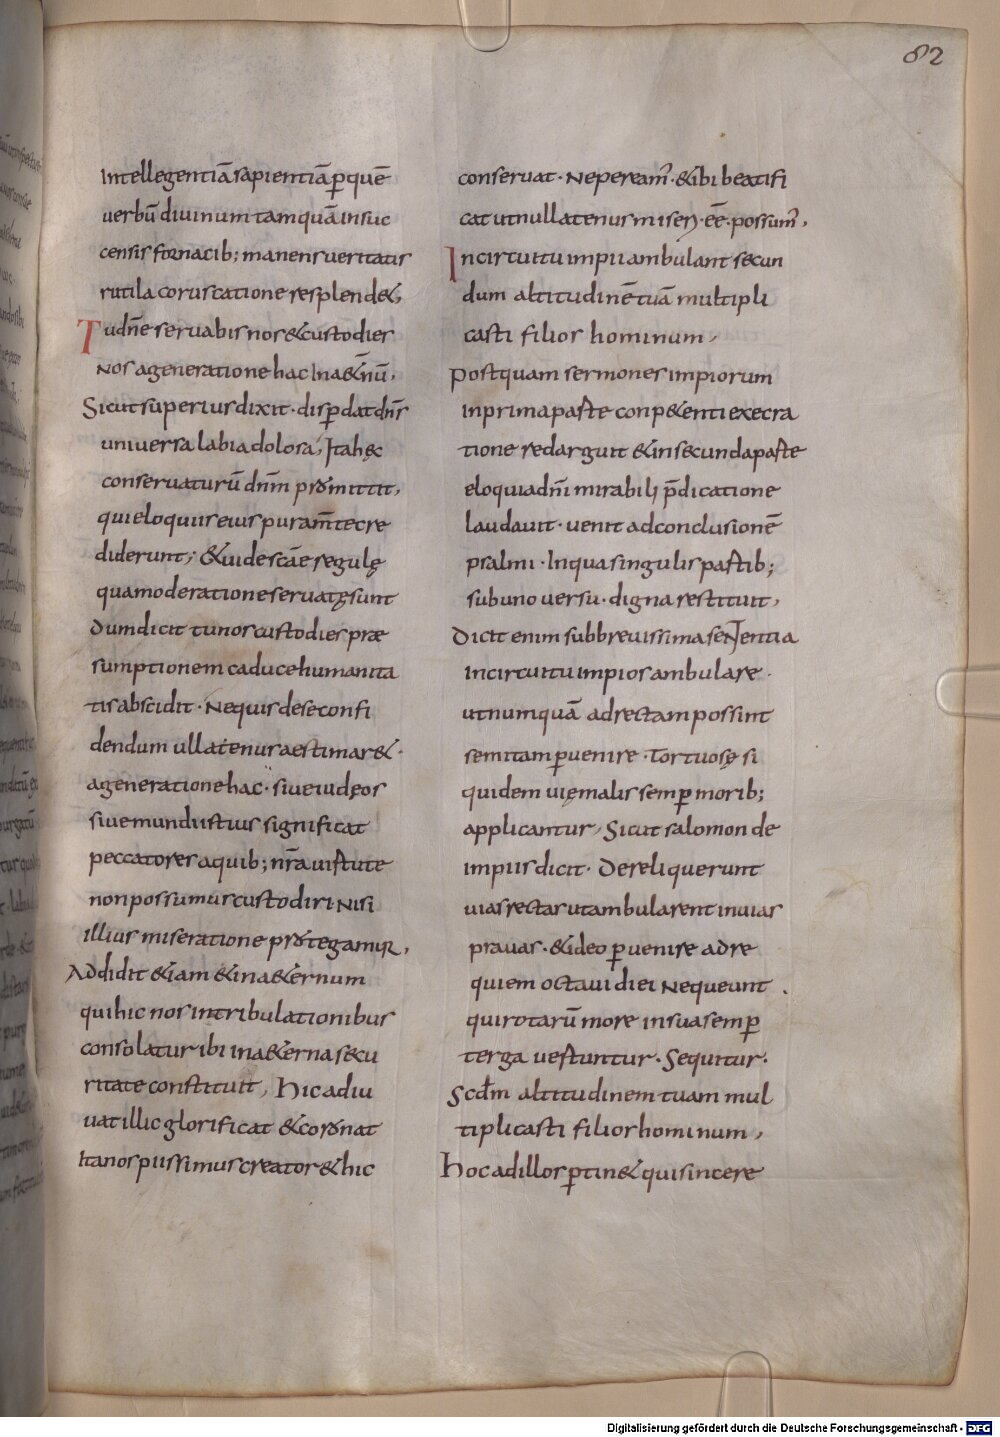 82
Intellegentiā sapientiā p̱ quē
uerbū diuinum tamquā insuc
censis fornacib; manens ueritatis
rutila coruscatione resplend&;
Tu dn̄e seruabis nos & custodies
nos a generatione hac in a&̄nū,
Sicut superius dixit· disp̱dat dn̄s
uniuersa labia dolosa, Ita hęc
conseruaturū dn̄m promittit,
qui eloquiis eius puram̄te cre
diderunt; & uide scāe regulę
qua moderatione seruatę sunt
dum dicit tu nos custodies præ
sumptionem caduce humanita
tis abscidit· Ne quis de se confi
dendum ullatenus aestimar&·
a generatione hac· siue iudęos
siue mundi istius significat
peccatores a quib; nr̄a uirtute
non possumus custodiri nisi
illius miseratione protegamur,
Addidit &iam & in a&ernum
qui hic nos in tribulationibus
consolatur ibi in a&erna secu
ritate constituit, Hic adiu
uat illic glorificat & coronat
Ita nos piissimus creator & hic
conseruat· Ne peream̄· & ibi beatifi
cat ut nullatenus miseri· ēē· possum̄,
In circuitu impii ambulant secun
dum altitudinē tuā multipli
casti filios hominum,
Postquam sermones impiorum
in prima parte conp&enti execra
tione redarguit & in secunda parte
eloquia dn̄i mirabili p̄dicatione
laudauit· uenit ad conclusionē
psalmi· In qua singulis partib;
sub uno uersu· digna restituit,
Dicit enim sub breuissima sententia
in circuitu impios ambulare·
ut numquā ad rectam possint
semitam p̱uenire· Tortuosę si
quidem uię malis semp̱ morib;
applicantur, Sicut salomon de
impiis dicit· Dereliquerunt
uias rectas ut ambularent in uias
prauas· & ideo p̱uenire ad re
quiem octaui diei nequeunt·
qui rotarū more in sua semp̱
terga uertuntur· Sequitur·
Scd̄m altitudinem tuam mul
tiplicasti filios hominum,
Hoc ad illos p̱tin& qui sincere
Digitalisierung gefördert durch die Deutsche Forschungsgemeinschaft - DFG